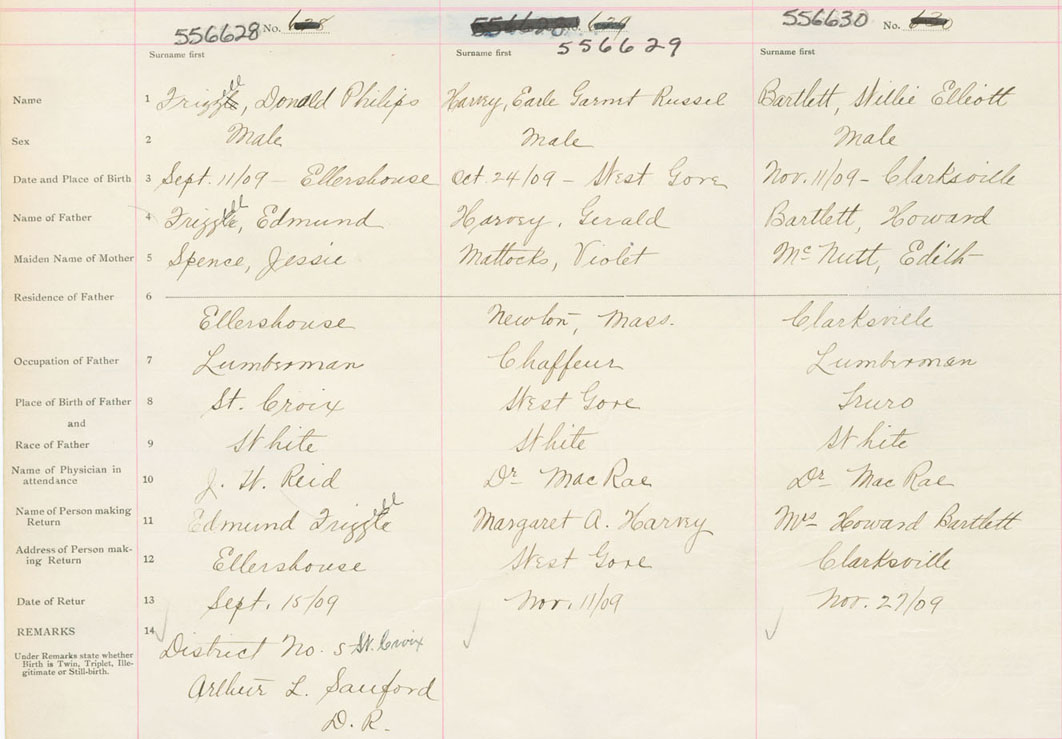 556628 No. 628
556628 No. 629
556629
556630 No. 630
Surname first Surname first Surname first
Name 1 Frizzell, Donald Philips Harvey, Earle Garnet Russel Bartlett, Willie Elliott
Sex 2 Male Male Male
Date and Place of Birth 3 Sept. 11/09 - Ellershouse Oct 24/09 - West Gore Nov. 11/09 - Clarksville
Name of Father 4 Frizzell, Edmund Harvey, Gerald Bartlett, Howard
Maiden Name of Mother 5 Spence, Jessie Mattocks, Violet McNutt, Edith
Residence of Father 6
Ellershouse Newton, Mass. Clarksville
Occupation of Father 7 Lumberman Chaffeur Lumberman
Place of Birth of Father 8 St. Croix West Gore Truro
and
Race of Father 9 White White White
Name of Physician in
attendance 10 J. W. Reid Dr MacRae Dr MacRae
Name of Person making
Return 11 Edmund Frizzell Margaret A. Harvey Mrs Howard Bartlett
Address of Person mak-
ing Return 12 Ellershouse West Gore Clarksville
Date of Retur 13 Sept. 15/09 Nov. 11/09 Nov. 27/09
REMARKS 14
Under Remarks state whether
Birth is Twin, Triplet, Ille-
gitimate or Still-birth.
District No. 5 St. Croix
Arthur L. Sanford
D. R.